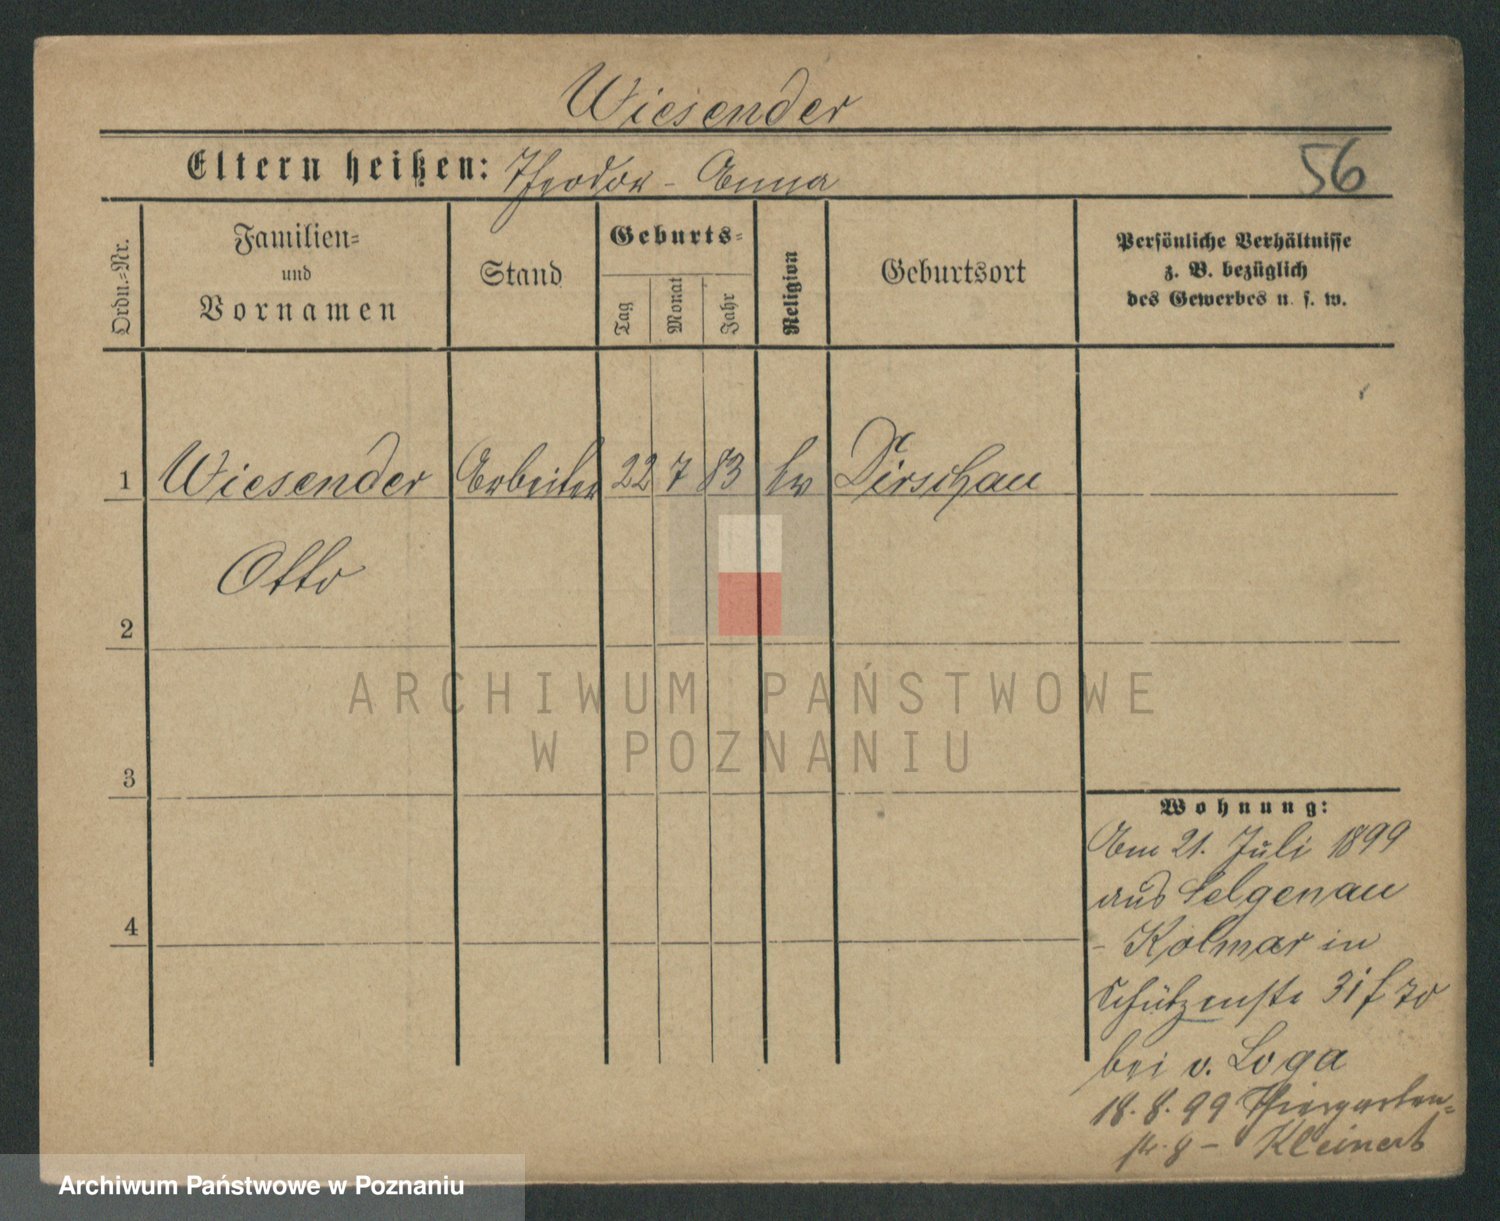 Wiesender
Eltern heißen: Theodor - Anna
56
Ordn.=Nr.
Familien=
und
Vornamen
Stand
Geburts=
Tag
Monat
Jahr
Religion
Geburtsort
Persönliche Verhältnisse
z. B. bezüglich
des Gewerbes u. s. w.
1 Wiesender Arbeiter 22 7 83 ev Dirschau
Otto
2
3
4
Wohnung:
Am 21. Juli 1899
aus Selgenau
- Kolmar in
Schützenstr 31
bei v. Loga
18.8.99 Thiergarten=
str. 8 - Kleinert
ARCHIWUM PAŃSTWOWE
W POZNANIU
Archiwum Państwowe w Poznaniu